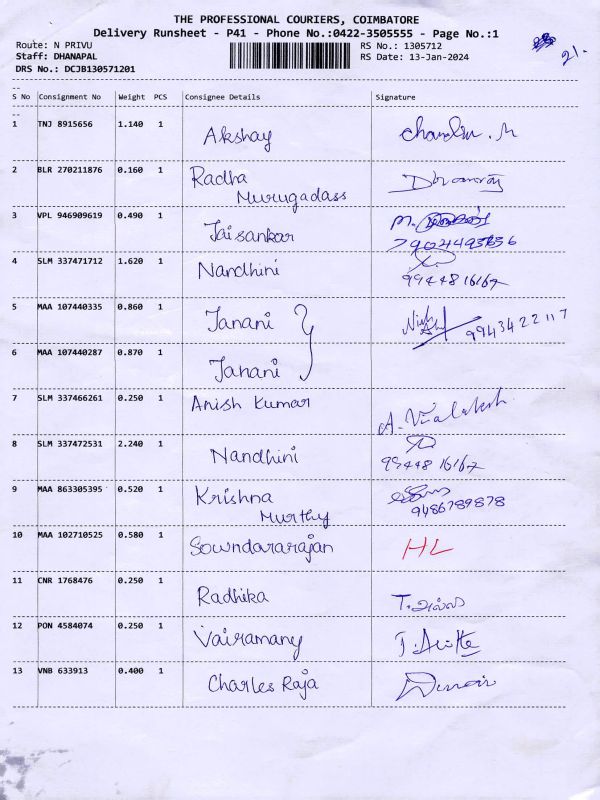 THE PROFESSIONAL COURIERS, COIMBATORE
Delivery Runsheet - P41 - Phone No.:0422-3505555 - Page No.:1
Route: N PRIVU RS No.: 1305712
Staff: DHANAPAL RS Date: 13-Jan-2024
DRS No.: DCJB130571201
21.
--
S No Consignment No Weight PCS Consignee Details Signature
--
1 TNJ 8915656 1.140 1 Akshay
2 BLR 270211876 0.160 1 Radha
Murugadass
3 VPL 946909619 0.490 1 Jaisankar M.
4 SLM 337471712 1.620 1 Nandhini
9944816167
5 MAA 107440335 0.860 1 Janani 9943422117
6 MAA 107440287 0.870 1 Janani
7 SLM 337466261 0.250 1 Anish Kumar
8 SLM 337472531 2.240 1 Nandhini
9944816167
9 MAA 863305395 0.520 1 Krishna
Murthy 9486789878
10 MAA 102710525 0.580 1 Sowndararajan HL
11 CNR 1768476 0.250 1 Radhika
12 PON 4584074 0.250 1 Vairamany
13 VNB 633913 0.400 1 Charles Raja